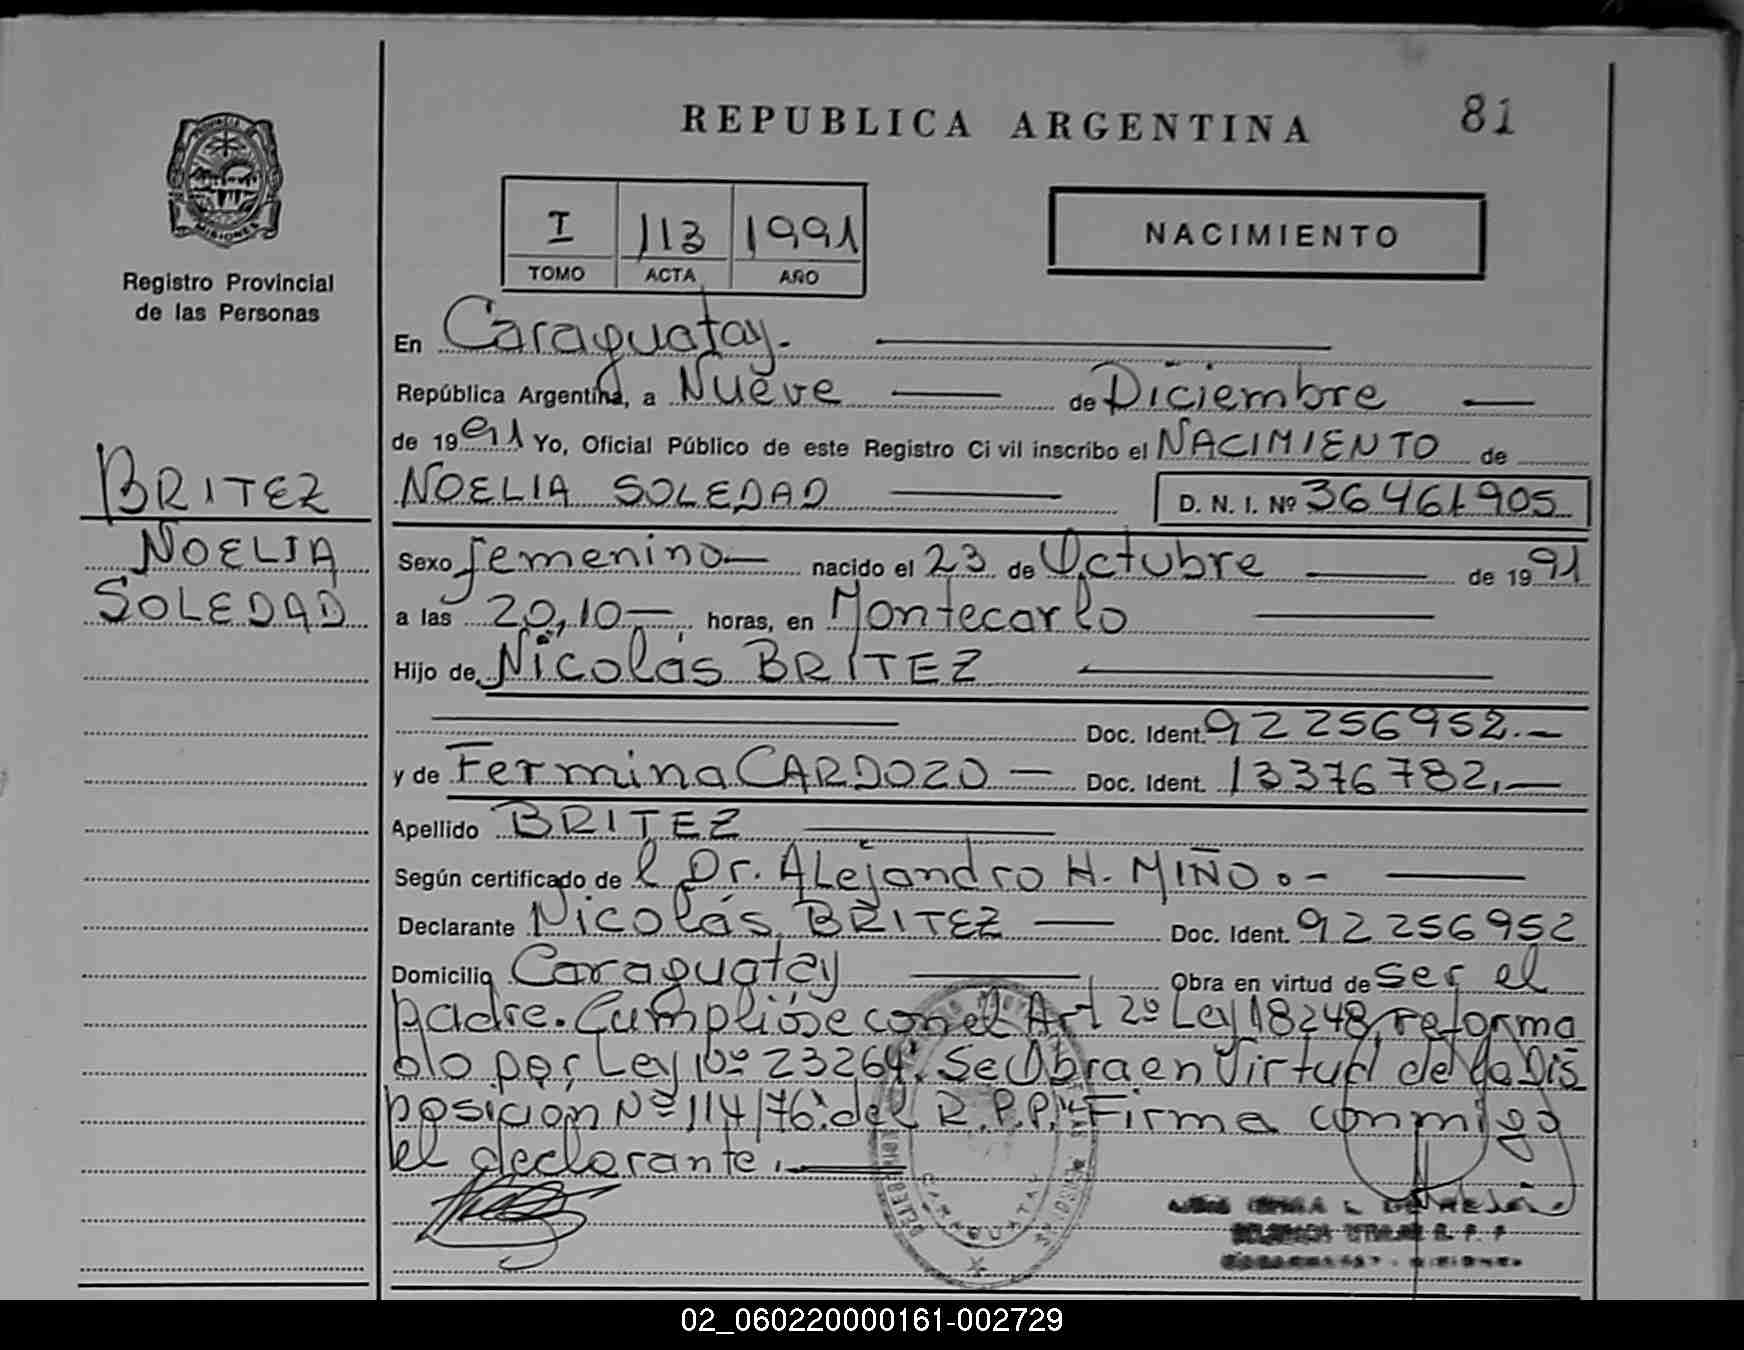 REPUBLICA ARGENTINA
81
PROVINCIA DE
MISIONES
Registro Provincial
de las Personas
I 113 1991
TOMO ACTA AÑO
NACIMIENTO
En Caraguatay.
República Argentina, a Nueve de Diciembre
de 1991 Yo, Oficial Público de este Registro Civil inscribo el NACIMIENTO de
NOELIA SOLEDAD D. N. I. Nº 36461905
BRITEZ
NOELIA
SOLEDAD
Sexo femenino nacido el 23 de Octubre de 1991
a las 20,10 horas, en Montecarlo
Hijo de Nicolás BRITEZ
Doc. Ident. 92256952.-
y de Fermina CARDOZO Doc. Ident. 13376782.-
Apellido BRITEZ
Según certificado de l Dr. ALejandro H. MIÑO.-
Declarante Nicolás BRITEZ Doc. Ident. 92256952
Domicilio Caraguatay Obra en virtud de ser el
padre. Cumplióse con el Art 2º Ley 18248, reforma
do por Ley Nº 23264. Se Obra en Virtud de la Dis
posición Nº 114/76 del R.P.P. Firma conmigo
el declarante.
CARAGUATAY
MISIONES
02_060220000161-002729